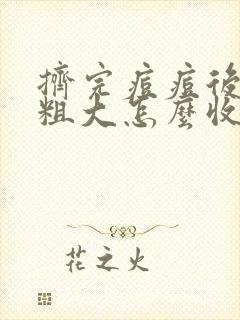 擠完痘痘後
粗大怎麼收
花之火